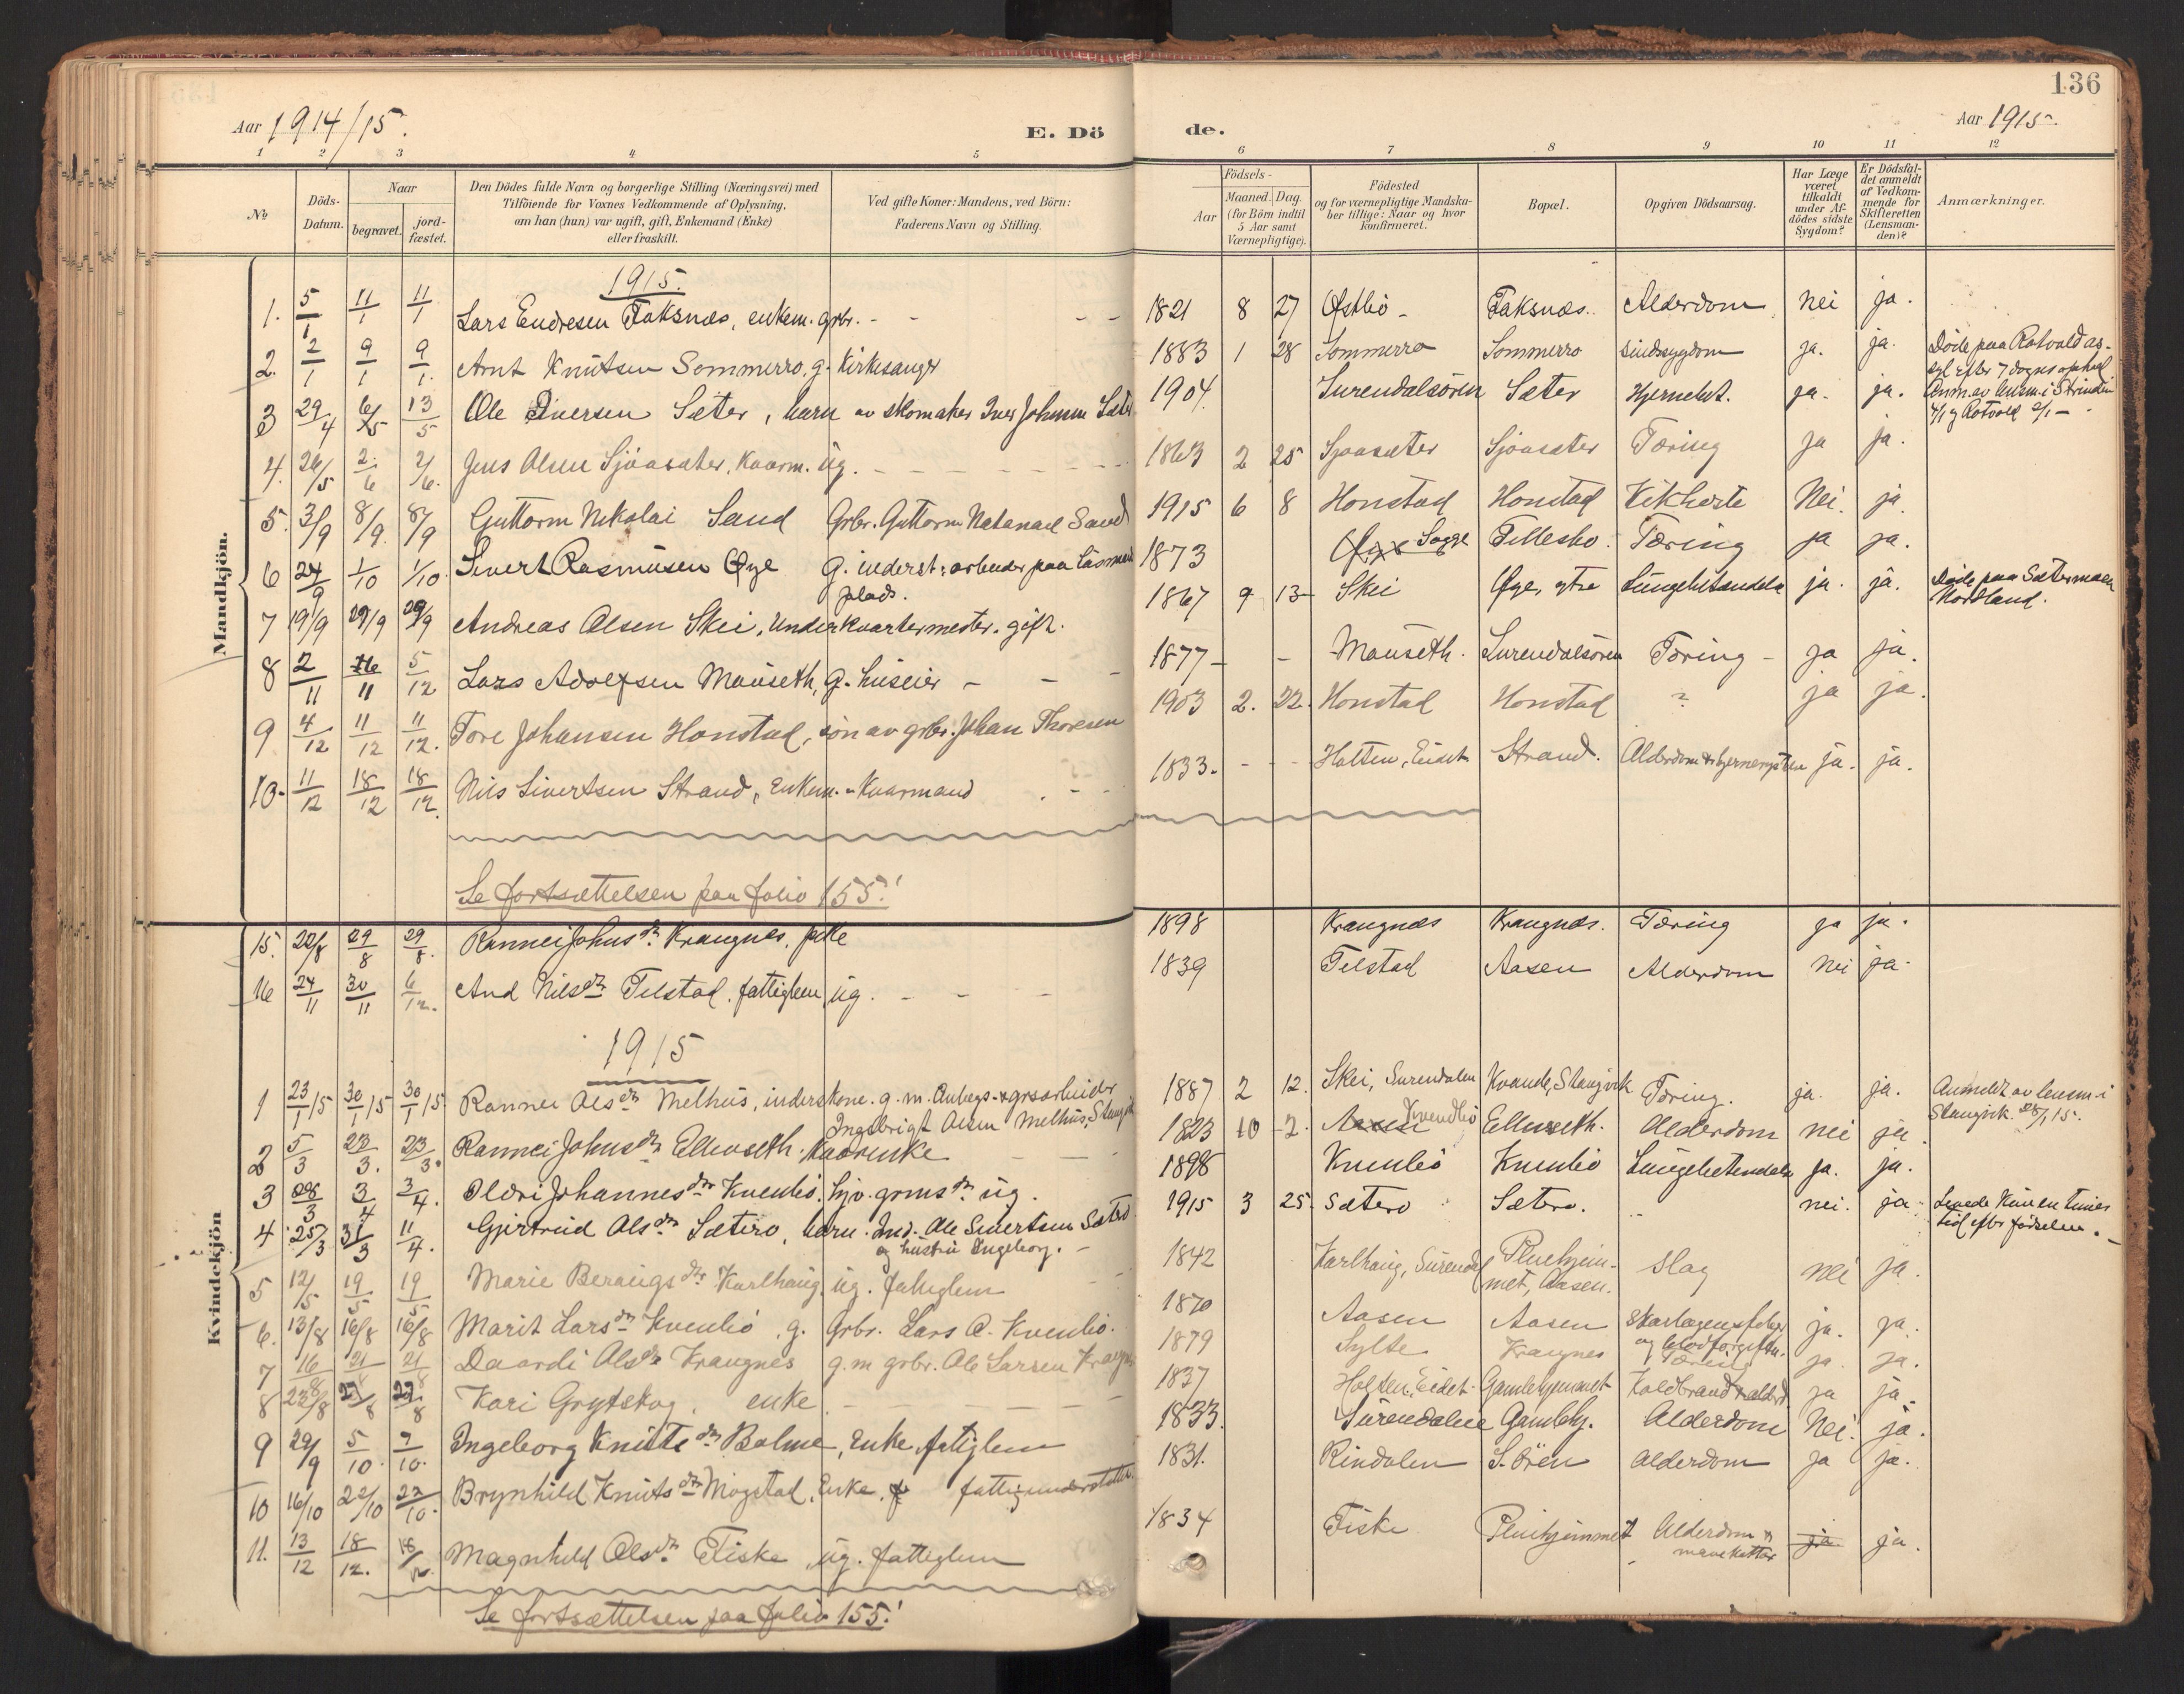 136
Aar 1914/15.
E. Dö
de.
Aar 1915.
1 2 3 4 5 6 7 8 9 10 11 12
No
Döds-Datum.
Naar
begravet.
jord-fæstet.
Den Dödes fulde Navn og borgerlige Stilling (Næringsvei) med
Tilföiende for Voxnes Vedkommende af Oplysning,
om han (hun) var ugift, gift, Enkemand (Enke)
eller fraskilt.
Ved gifte Koner: Mandens, ved Börn:
Faderens Navn og Stilling.
Födsels-
Aar
Maaned. Dag.
(for Börn indtil
5 Aar samt
Værnepligtige).
Födested
og for værnepligtige Mandska-
ber tillige: Naar og hvor
konfirmeret.
Bopæl.
Opgiven Dödsaarsag.
Har Læge
været
tilkaldt
under Af-
dödes sidste
Sygdom?
Er Dödsfal-
det anmeldt
af Vedkom-
mende for
Skifteretten
(Lensman-
den)?
Anmærkninger.
Mandkjön.
1915.
1. 5/1 11/1 11/1 Lars Endresen Taksnæs, enkem. grbr. - - 1821 8 27 Østbö - Taksnæs. Alderdom. nei ja.
2. 2/1 9/1 9/1. Arnt Knutsen Sommerro, g. Kirkesanger 1883 1 28 Sommerro Sommerro sindssygdom ja. ja. Döde paa Rotvold as-
syl efter 7 dognsophol.
3 29/4 6/5 13/5 Ole Iversen Sæter, barn av skomaker Iver Johnsen Sæter 1904. Surendalsören Sæter Hjernebet. ja. ja. Anm. av lensm. i Strinden
4/1 g Rotvold 2/1 -
4. 26/5 2/6 2/6. Jens Olsen Sjöasæter. Kaarm. ug. - - - 1863 2 25 Sjöasæter Sjöasæter Tæring ja ja.
5. 3/9 8/9. 8/9 Guttorm Nikolai Sand Grbr. Guttorm Natanael Sand 1915 6 8 Honstad Honstad Kikhoste Nei. ja.
6 24/9 1/10 1/10. Sivert Rasmusen Øye G. inderst: arbeider paa Casmean
plads. 1873 Øye Sogge Tellesbo. Tæring ja ja.
7 19/9 29/9 29/9 Andreas Olsen Skei, Underkvartermester. gift. 1867 9 13 Skei Øye, ytre Lungebetændelse ja. ja. Döde paa Sætermoen
Nordland.
8 2/11 16/11 5/12 Lars Adolfsen Mauseth, G. huseier - - - 1877 - - Mauseth. Surendalsören Tæring - ja ja.
9 4/12 11/12 11/12. Tore Johansen Honstad, sön av grbr. Johan Thoresen 1903 2. 22. Honstad Honstad ? ja ja.
10. 11/12 18/12 18/12. Nils Sivertsen Strand, Enkem. - Kaarmand 1833. - - Halten, Eidet Strand. Alderdom & hjernerysten ja. ja.
Se fortsættelsen paa folio 155!
Kvindekjön
15. 22/8 29/8 29/8. Rannei Johnsdr. Krangnes, pike 1898 Krangnæs Krangnæs. Tæring ja ja.
16 24/11 30/11 6/12. And Nilsdr Telstad. fattiglem, ug. - - - 1839 Telstad Aasen Alderdom nei ja.
1915
1 23/1 15 30/1 15 30/1 15. Rannei Olsdr Melhus, inderskone. g. m. Anlegs- & grsarbeider
Ingebrigt Olsen Melhus, Stangvik 1887 2 12. Skei, Surendalen Kvande, Stangvik Tæring. ja. ja. Anmeldt av lensm. i
Stangvik. 28/1 15.
2 5/3 23/3. 23/3. Rannei Johnsdr Ellevseth. Kaarenke - - 1823 10 2. Aasen Kvendbö Ellevseth. Alderdom nei ja.
3 28/3 3/4 3/4. Oldri Johannesdtr Kvenbö. hjv. grmsdr ug. 1898 Kvenbö Kvenbö Lungebetændelse ja. ja.
4 25/3 31/3 11/4. Gjertrud Olsdr Sætero, barn. Ind. Ole Sivertsen Sætero
og hustru Ingeborg. - 1915 3 25. Sætero Sætero. - nei. ja. Levede kun en times
tid efter födselen. -
5 12/5 19/5 19/5 Marie Beraugsdtr Karlhaug, ug. fattiglem 1842 Karlhaug, Surendal Pleiehjem-
met, Aasen. slag nei ja.
6. 13/8 16/8 16/8 Marit Larsdtr Kvenbö, g. Grbr. Lars O. Kvenbö. 1870 Aasen Aasen Skarlagensfeber
og blodforgiftn. ja. ja.
7 16/8 21/8 21/8 Daardi Olsdr Krangnes g. m grbr. Ole Larsen Krangnes 1879 Sylte Krangnes Tæring ja. ja.
8 23/8 27/8 27/8 Kari Grytskog, enke - - - 1837 Halten. Eidet Gamlehjemmet Koldbrand & alderd. ja ja.
9 29/9 5/10. 7/10. Ingeborg Knutsdtr Bolme, Enke, fattiglem 1833. Surendalen Gamlehj. Alderdom Nei. ja.
10 16/10 22/10 22/10. Brynhild Knutsdtr Mogstad, Enke, fattigunderstöttet. 1831. Rindalen S. ören Alderdom ja ja.
11. 13/12 18/12. 18/12 Magnhild Olsdr Fiske, ug. fattiglem 1834 Fiske Pleiehjemmet Alderdom &
mavekatar ja ja.
Se fortsættelsen paa folio 155!